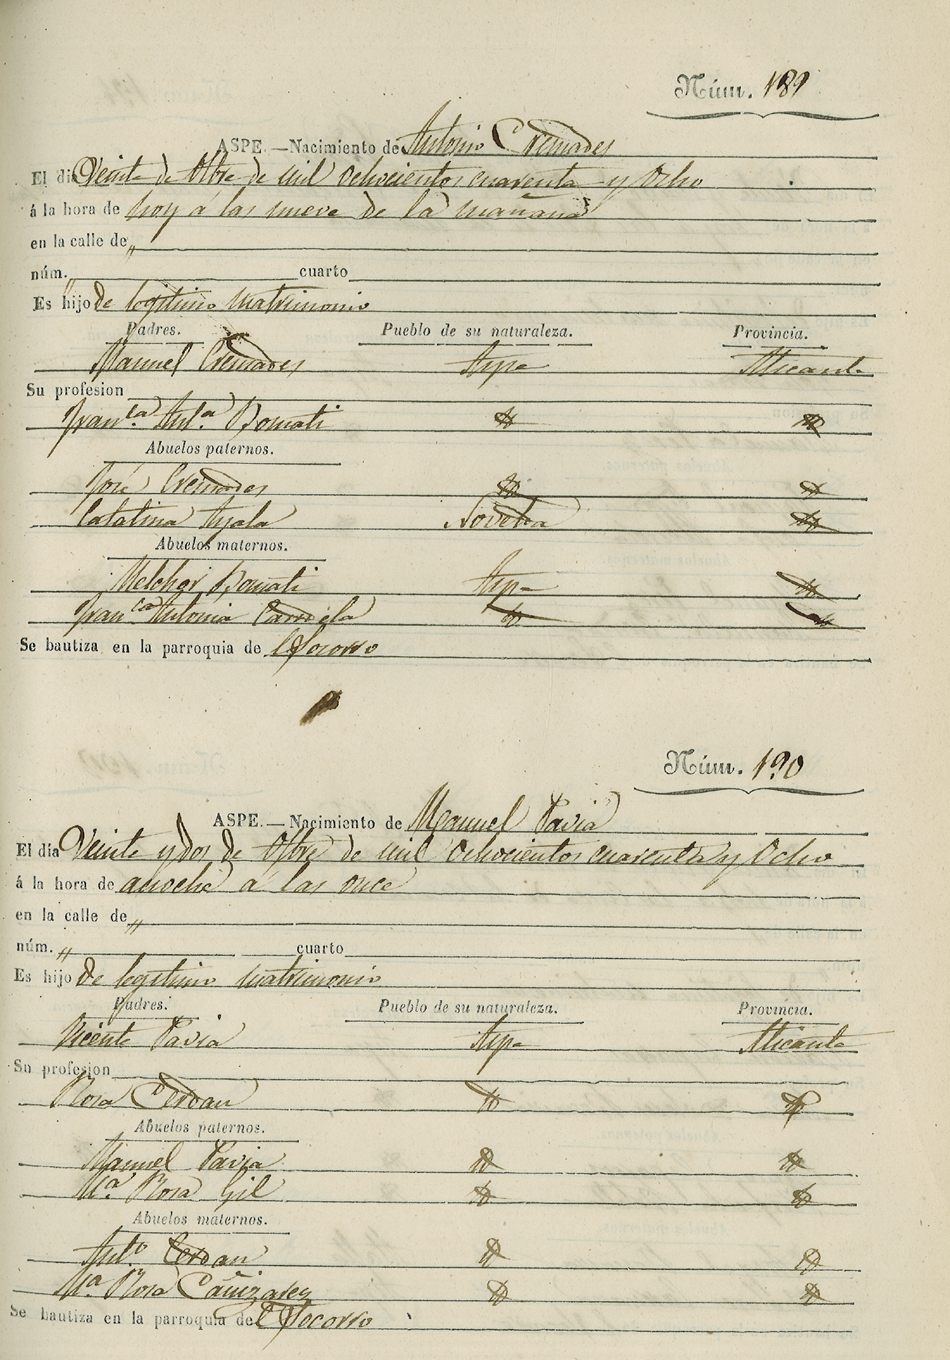 Núm. 189
ASPE.—Nacimiento de Antonio Cremades
El dia Veinte de 8bre de mil ochocientos cuarenta y Ocho
á la hora de hoy á las nueve de la mañana
en la calle de „
núm. „ cuarto
Es hijo de legitimo matrimonio
Padres. Pueblo de su naturaleza. Provincia.
Manuel Cremades Aspe Alicante
Su profesion
Fran.ca Ant.a Bomati
Abuelos paternos.
José Cremades
Catalina Ayala Novelda
Abuelos maternos.
Melchor Bomati Aspe
Fran.ca Antonia
Se bautiza en la parroquia de el Socorro
Núm. 190
ASPE.—Nacimiento de Manuel Pavia
El dia Veinte y dos de 8bre de mil ochocientos cuarenta y Ocho
á la hora de anoche á las once
en la calle de „
núm. „ cuarto
Es hijo de legitimo matrimonio
Padres. Pueblo de su naturaleza. Provincia.
Vicente Pavia Aspe Alicante
Su profesion
Rosa Cerdan
Abuelos paternos.
Manuel Pavia
M.a Rosa Gil
Abuelos maternos.
Ant.o Cerdan
M.a Rosa Cañizares
Se bautiza en la parroquia de el Socorro